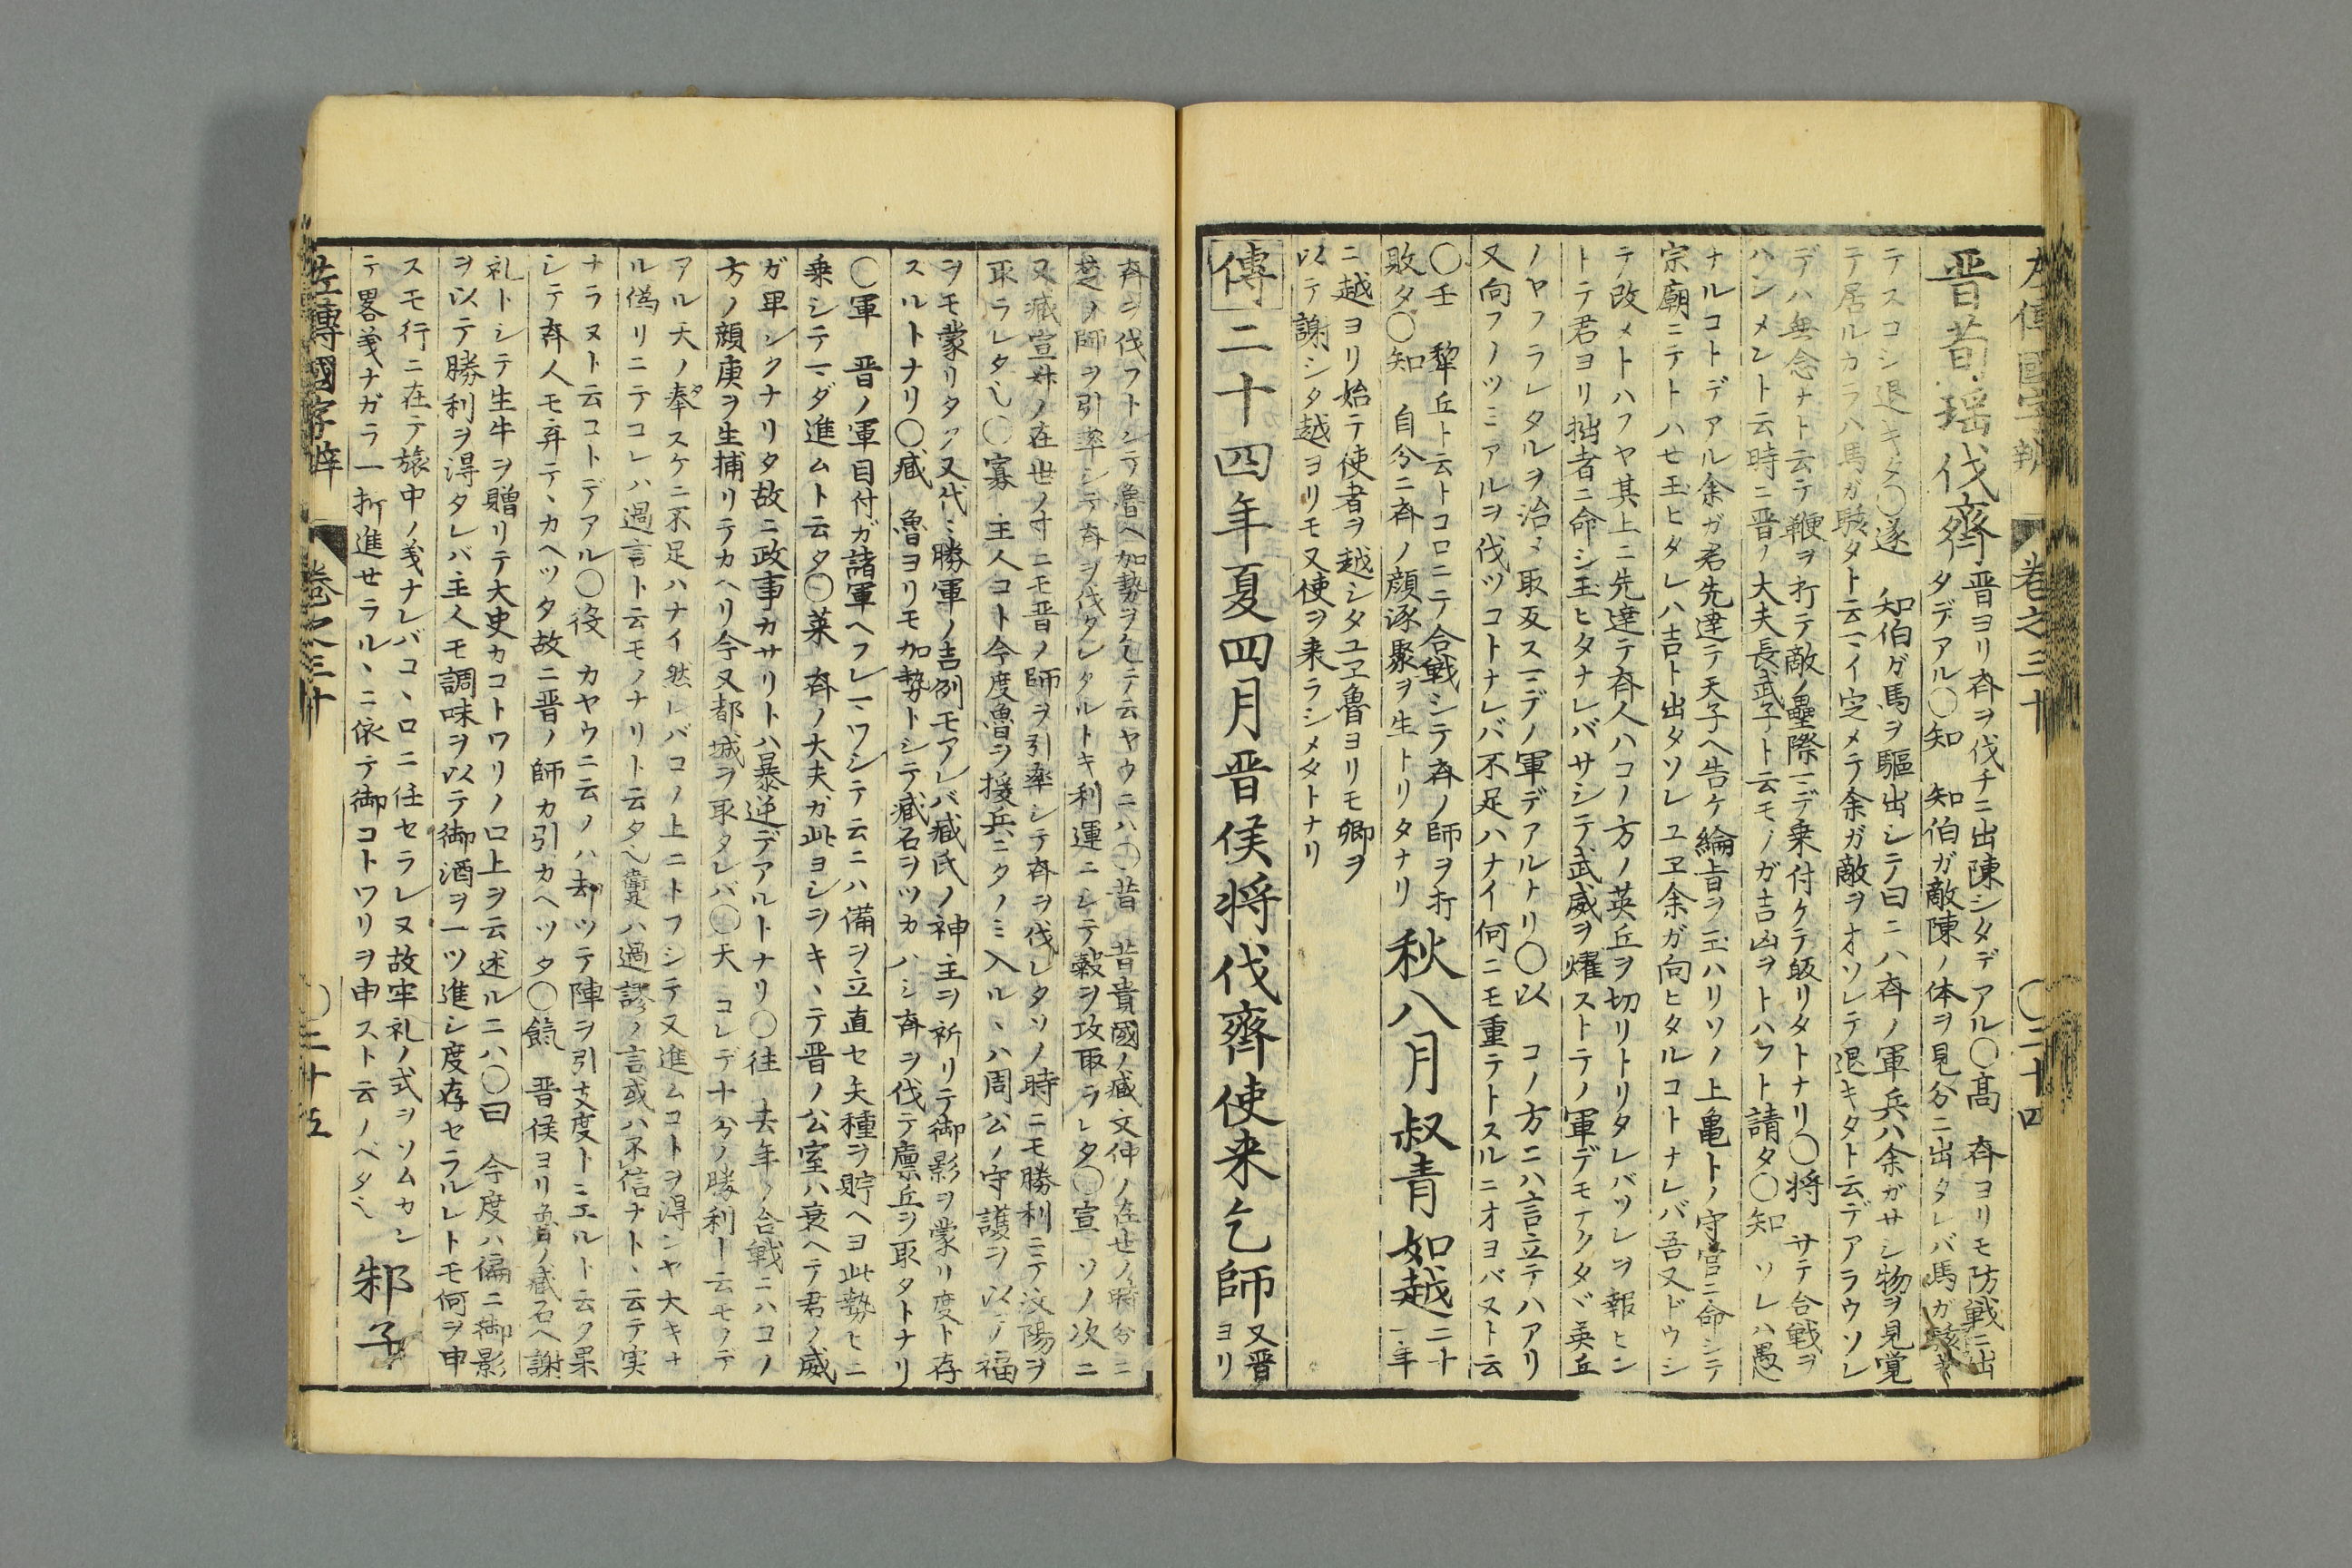 左傳國字辨 卷之三十 〇三十四
晋荀瑶伐齊
晋ヨリ斉ヲ伐チニ出陳シタデアル〇髙 斉ヨリモ防戦ニ出
タデアル〇知 知伯ガ敵陳ノ体ヲ見分ニ出タレバ馬ガ駭キ
テスコシ退キタ〇遂 知伯ガ馬ヲ驅出シテ曰ニハ斉ノ軍兵ハ余ガサシ物ヲ見覚
テ居ルカラハ馬ガ駭タト云マイ定メテ余ガ敵ヲオソレテ退キタト云デアラウソレ
デハ無念ナト云テ鞭ヲ打テ敵ノ壘際マデ乗付ケテ皈リタトナリ〇将 サテ合戦ヲ
ハシメント云時ニ晋ノ大夫長武子ト云モノガ吉凶ヲトハフト請タ〇知 ソレハ愚
ナルコトデアル余ガ君先達テ天子ヘ告ケ綸旨ヲ玉ハリソノ上亀トノ守官ニ命シテ
宗廟ニテトハせ玉ヒタレハ吉ト出タソレユヱ余ガ向ヒタルコトナレバ吾又ドウシ
テ改メトハフヤ其上ニ先達テ斉人ハコノ方ノ英丘ヲ切リトリタレバソレヲ報ヒン
トテ君ヨリ拙者ニ命シ玉ヒタナレバサシテ武威ヲ燿ストテノ軍デモナクタヾ英丘
ノヤフラレタルヲ治メ取反スマデノ軍デアルトナリ〇以 コノ方ニハ言立テハアリ
又向フノツミアルヲ伐ツコトナレバ不足ハナイ何ニモ重テトスルニオヨバヌト云
〇壬 犂丘ト云トコロニテ合戦シテ斉ノ師ヲ打
敗タ〇知 自分ニ斉ノ顔涿聚ヲ生トリタナリ
秋八月叔青如越
二十
一年
ニ越ヨリ始テ使者ヲ越シタユヱ魯ヨリモ卿ヲ
以テ謝シタ越ヨリモ又使ヲ来ラシメタトナリ
傳二十四年夏四月晋侯将伐齊使来乞師
又晋
ヨリ
斉ヲ伐フトシテ魯ヘ加勢ヲ乞テ云ヤウニハ〇昔 昔貴國ノ臧文仲ノ在世ノ時分ニ
楚ノ師ヲ引率シテ斉ヲ伐タレタルトキ利運ニシテ穀ヲ攻取ラレタ〇宣 ソノ次ニ
又臧宣叔ノ在世ノ寸ニモ晋ノ師ヲ引率シテ斉ヲ伐レタソノ時ニモ勝利ニテ汶陽ヲ
取ラレタ乀〇寡 主人コト今度魯ヲ援兵ニタノミ入ルヽハ周公ノ守護ヲ以テノ福
ヲモ蒙リタク又代ミ勝軍ノ吉例モアレバ臧氏ノ神主ヲ祈リテ御影ヲ蒙リ度ト存
スルトナリ〇臧 魯ヨリモ加勢トシテ臧石ヲツカハシ斉ヲ伐テ廪丘ヲ取タトナリ
〇軍 晋ノ軍目付ガ諸軍ヘフレマワシテ云ニハ備ヲ立直セ矢種ヲ貯ヘヨ此勢ヒニ
乗シテマダ進ムト云タ〇莱 斉ノ大夫ガ此ヨシヲキヽテ晋ノ公室ハ衰ヘテ君ノ威
ガ卑シクナリタ故ニ政事カサリトハ暴逆デアルトナリ〇往 去年ノ合戦ニハコノ
方ノ顔庚ヲ生捕リテカヘリ今又都城ヲ取タレバ〇天 コレデ十分ノ勝利ト云モノデ
アル天ノ奉スケニ不足ハナイ然レバコノ上ニトフシテ又進ムコトヲ得ンヤ大キナ
ル偽リニテコレハ過言ト云モノナリト云タ乀躗ハ過謬ノ言或ハ不信ナトヽ云テ実
ナラヌト云コトデアル〇役 カヤウニ云ノハ却ツテ陣ヲ引支度トミエルト云ク果
シテ斉人モ弃テヽカヘツタ故ニ晋ノ師カ引カヘツタ〇餼 晋侯ヨリ魯ノ臧石ヘ謝
礼トシテ生牛ヲ贈リテ大史カコトワリノ口上ヲ云述ルニハ〇曰 今度ハ偏ニ御影
ヲ以テ勝利ヲ得タレバ主人モ調味ヲ以テ御酒ヲ一ツ進シ度存セラルレトモ何ヲ申
スモ行ニ在テ旅中ノ義ナレバコヽロニ任セラレヌ故牢礼ノ式ヲソムカン
テ畧義ナガラ一折進せラルヽニ依テ御コトワリヲ申スト云ノベタ乀
邾子
左傳國字辨 卷之三十 〇三十五